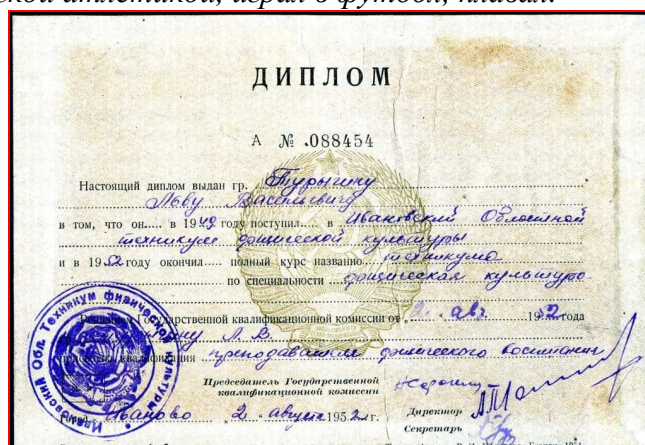 ской атлетикой, играл в футбол, плавал.
ДИПЛОМ
А № 088454
Настоящий диплом выдан гр. Турыгину
Льву Васильевичу
в том, что он в 1949 году поступил в Ивановский Областной
техникум физической культуры
и в 1952 году окончил полный курс названно техникума
по специальности физическая культура
Государственной квалификационной комиссии от 2 авг 1952 года
Л. В.
квалификация преподавателя физического воспитания
Председатель Государственной
квалификационной комиссии
Иваново 2 августа 1952 г.
Директор
Секретарь
Ивановский Обл. Техникум физической культуры